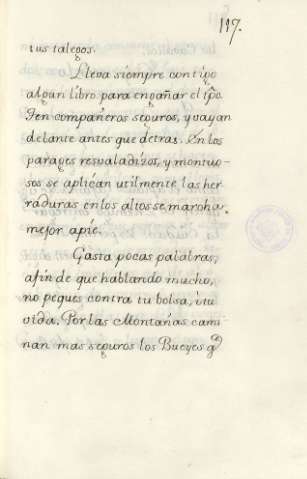 117.
tus talegos.
Lleva siempre contigo
algun libro para engañar el tpõ.
Ten compañeros seguros, y vayan
delante antes que detras. En los
parages resvaladizos, y montuo-
sos se aplican utilmente las her
raduras en los altos se marcha
mejor apie.
Gasta pocas palabras,
afin de que hablando mucho,
no peques contra tu bolsa, i tu
vida. Por las Montañas cami
nan mas seguros los Bueyes q̃